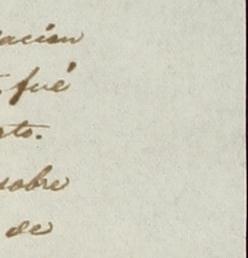 acion
fué
to.
sobre
de